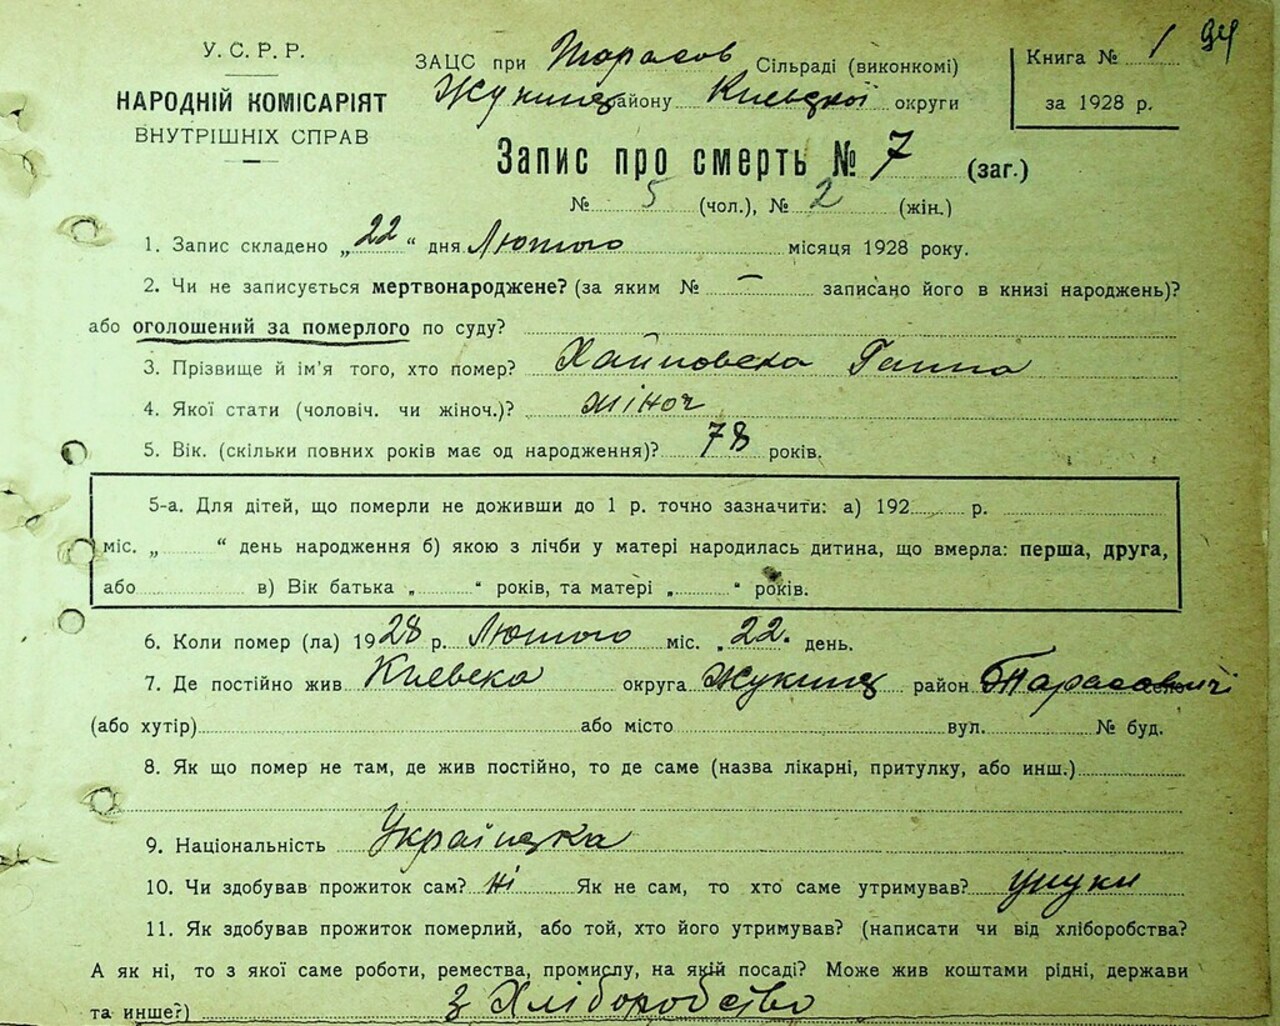 У. С. Р. Р.
НАРОДНІЙ КОМІСАРІЯТ
ВНУТРІШНІХ СПРАВ
ЗАЦС при Тарасов Сільраді (виконкомі)
Жукинц району Київської округи
Книга № 1 94
за 1928 р.
Запис про смерть № 7 (заг.)
№ 5 (чол.), № 2 (жін.)
1. Запис складено „22“ дня Лютого місяця 1928 року.
2. Чи не записується мертвонароджене? (за яким № — записано його в книзі народжень)?
або оголошений за померлого по суду?
3. Прізвище й ім'я того, хто помер? Ганна
4. Якої стати (чоловіч. чи жіноч.)? жіноч
5. Вік. (скільки повних років має од народження)? 78 років.
5-а. Для дітей, що померли не доживши до 1 р. точно зазначити: а) 192 р.
міс. „ “ день народження б) якою з лічби у матері народилась дитина, що вмерла: перша, друга,
або в) Вік батька „ “ років, та матері „ “ років.
6. Коли помер (ла) 1928 р. Лютого міс. „22“ день.
7. Де постійно жив Київска округа Жукинц район Тарасовичі
(або хутір) або місто вул. № буд.
8. Як що помер не там, де жив постійно, то де саме (назва лікарні, притулку, або инш.)
9. Національність Українка
10. Чи здобував прожиток сам? ні Як не сам, то хто саме утримував? унуки
11. Як здобував прожиток померлий, або той, хто його утримував? (написати чи від хліборобства?
А як ні, то з якої саме роботи, ремества, промислу, на якій посаді? Може жив коштами рідні, держави
та инше?) З Хліборобство